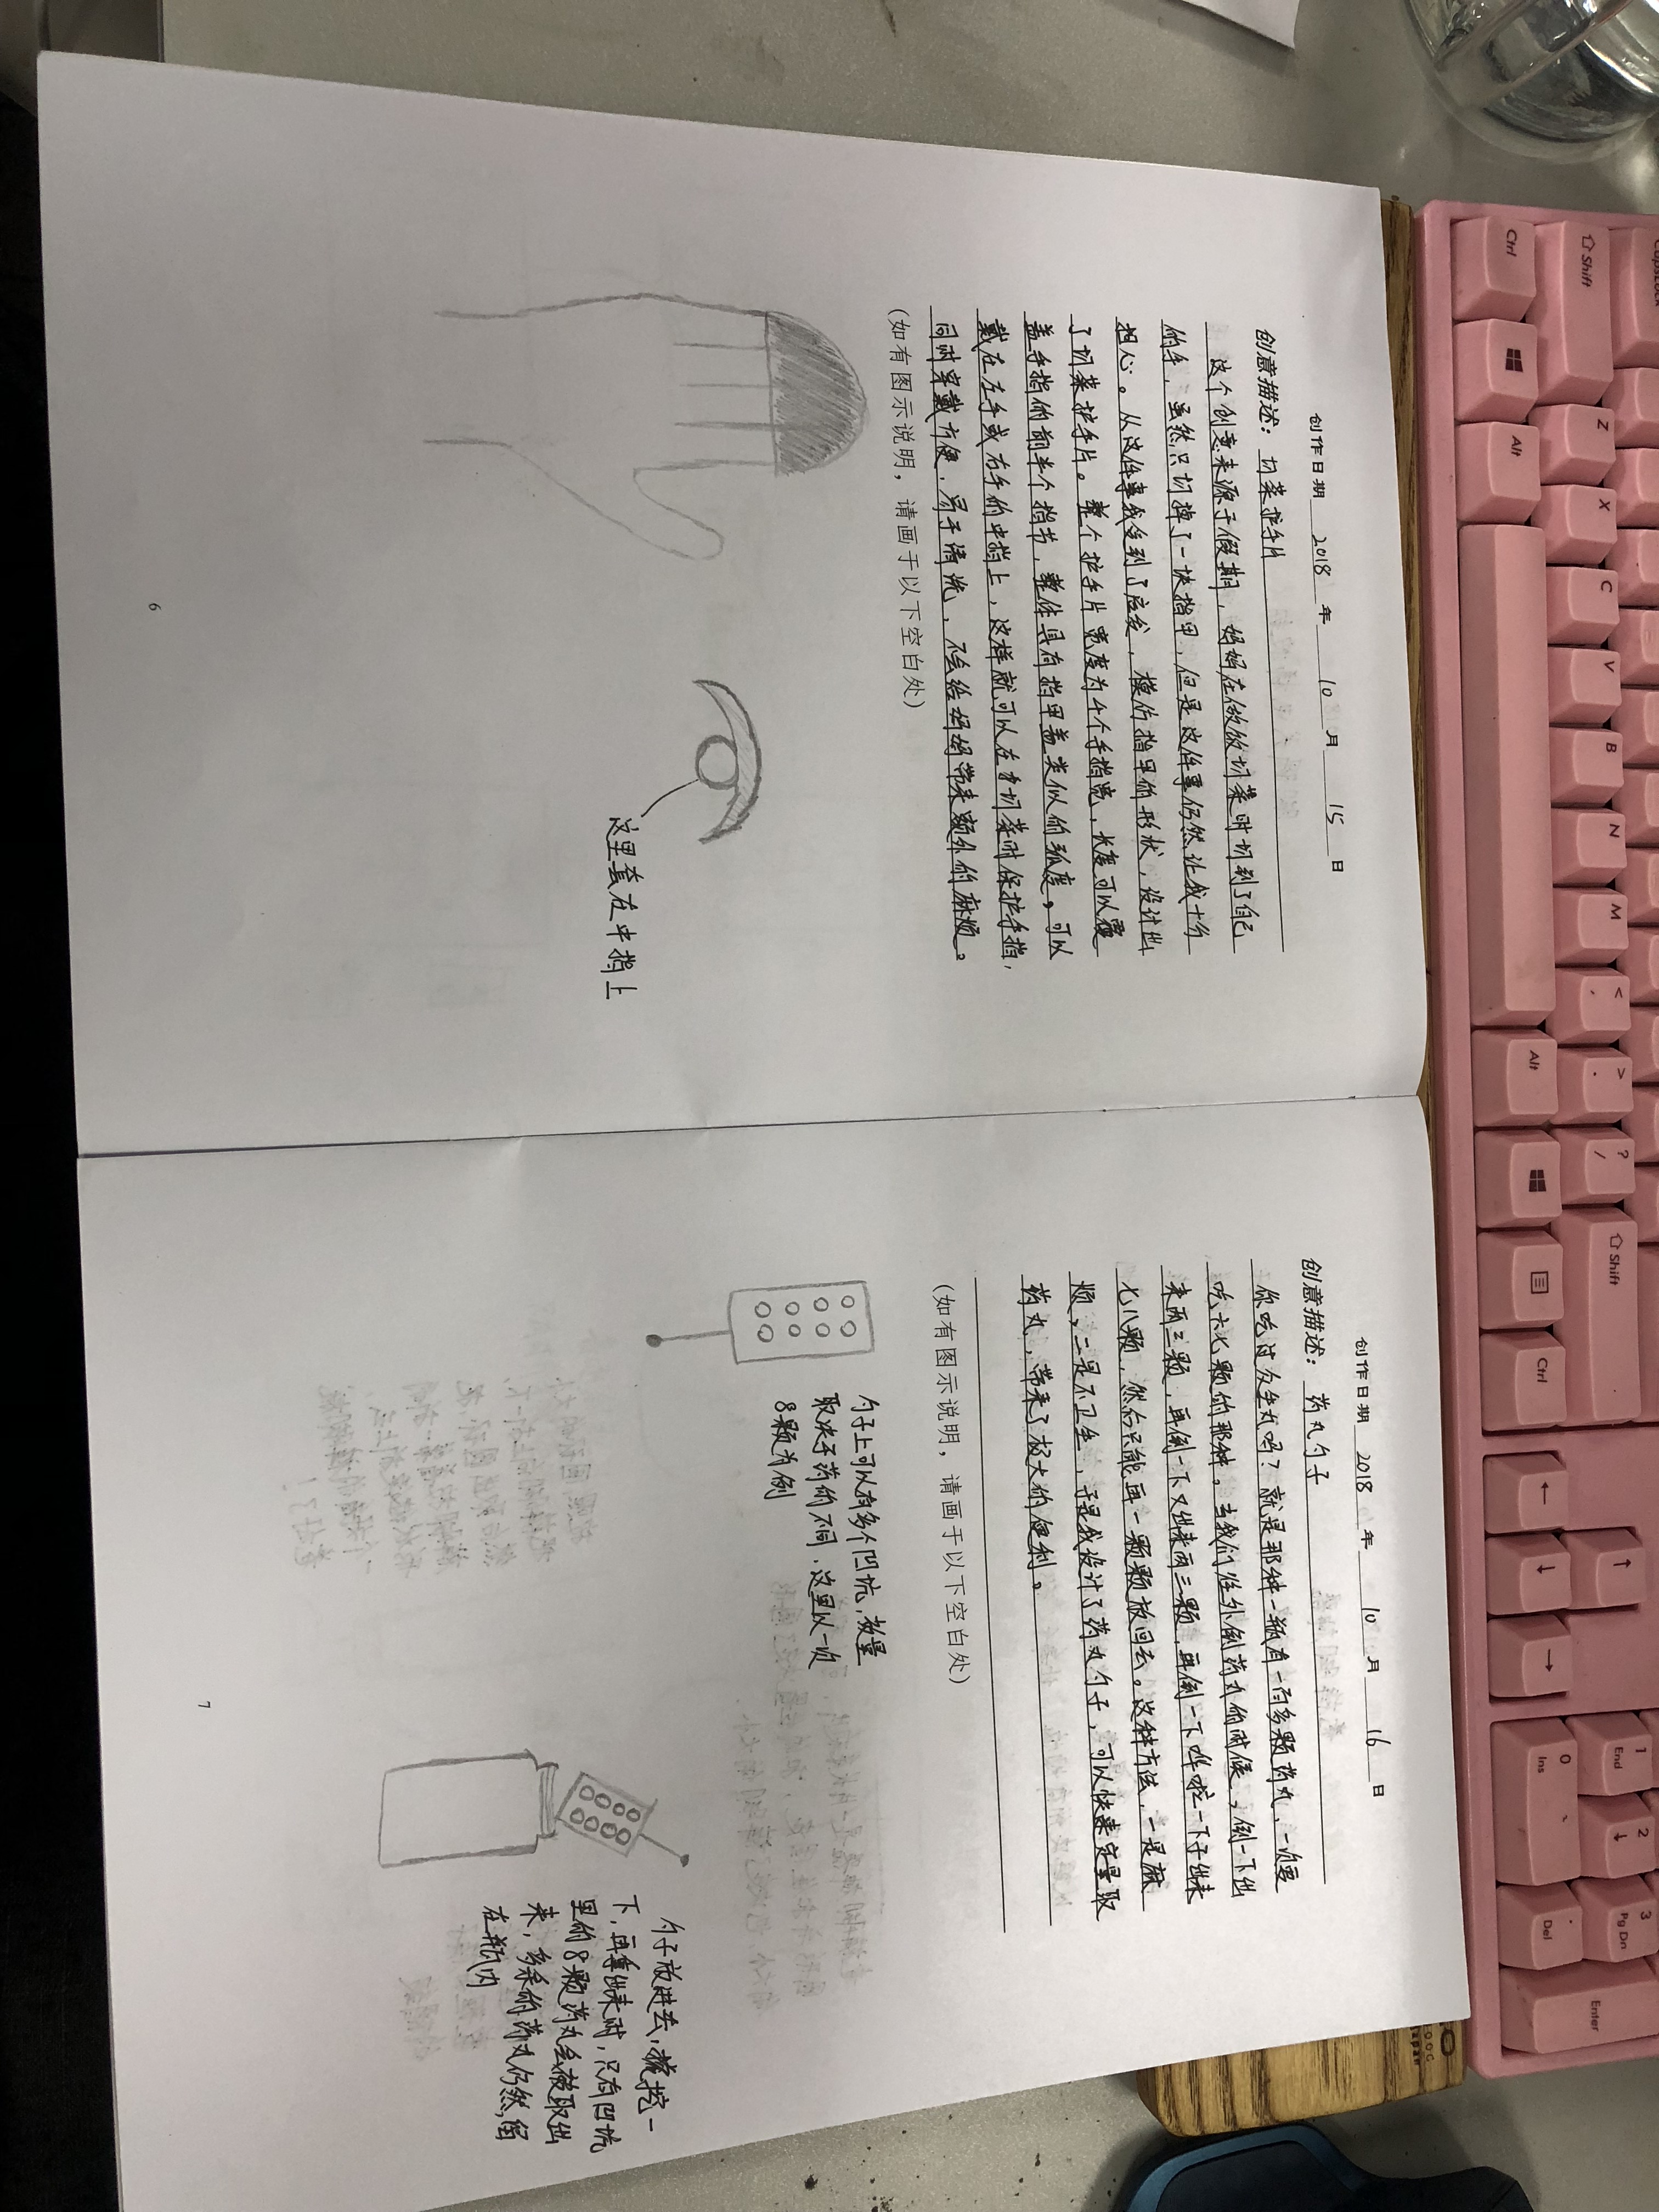 创作日期 2018 年 10 月 15 日
创意描述：切菜护手片
这个创意来源于假期，妈妈在做饭切菜时切到了自己
的手，虽然只切掉了一块指甲，但是这件事仍然让我十分
担心。从这件事我受到了启发，模仿指甲的形状，设计出
了切菜护手片。整个护手片宽度为4个手指宽，长度可以覆
盖手指的前半个指节，整体具有指甲盖类似的弧度，可以
戴在左手或右手的中指上，这样就可以在切菜时保护手指，
同时穿戴方便，易于清洗，不会给妈妈带来额外的麻烦。
（如有图示说明，请画于以下空白处）
这里套在中指上
6
创作日期 2018 年 10 月 16 日
创意描述：药丸勺子
你吃过众生丸吗？就是那种一瓶有一百多颗药丸，一次要
吃六七颗的那种。当我们往外倒药丸的时候，倒一下出
来两三颗，再倒一下又出来两三颗，再倒一下哗啦一下子出来
七八颗，然后只能再一颗颗放回去。这种方法，一是麻
烦，二是不卫生，于是我设计了药丸勺子，可以快速定量取
药丸，带来了极大的便利。
（如有图示说明，请画于以下空白处）
勺子上可以有多个凹坑，数量
取决于药的不同，这里以一次
8颗为例
勺子放进去，挖一
下，再拿出来时，只有凹坑
里的8颗药丸会被取出
来，多余的药丸仍然留
在瓶内
7
CapsLock
Shift
Z
X
C
V
B
N
M
<
,
>
.
?
/
Shift
Ctrl
Alt
Alt
Ctrl
↑
←
↓
→
1
End
2
↓
3
Pg Dn
Enter
0
Ins
.
Del